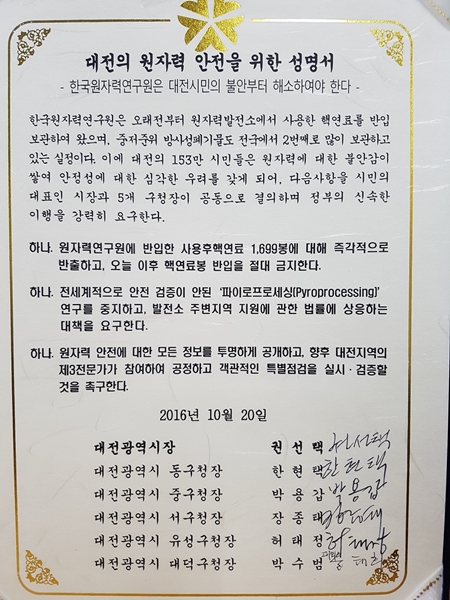 대전의 원자력 안전을 위한 성명서
- 한국원자력연구원은 대전시민의 불안부터 해소하여야 한다 -
한국원자력연구원은 오래전부터 원자력발전소에서 사용한 핵연료를 반입
보관하여 왔으며, 중저준위 방사성폐기물도 전국에서 2번째로 많이 보관하고
있는 실정이다. 이에 대전의 153만 시민들은 원자력에 대한 불안감이
쌓여 안정성에 대한 심각한 우려를 갖게 되어, 다음사항을 시민의
대표인 시장과 5개 구청장이 공동으로 결의하며 정부의 신속한
이행을 강력히 요구한다.
하나. 원자력연구원에 반입한 사용후핵연료 1,699봉에 대해 즉각적으로
반출하고, 오늘 이후 핵연료봉 반입을 절대 금지한다.
하나. 전세계적으로 안전 검증이 안된 '파이로프로세싱(Pyroprocessing)'
연구를 중지하고, 발전소 주변지역 지원에 관한 법률에 상응하는
대책을 요구한다.
하나. 원자력 안전에 대한 모든 정보를 투명하게 공개하고, 향후 대전지역의
제3전문가가 참여하여 공정하고 객관적인 특별점검을 실시·검증할
것을 촉구한다.
2016년 10월 20일
대전광역시장 권 선 택 권선택
대전광역시 동구청장 한 현 택 한현택
대전광역시 중구청장 박 용 갑 박용갑
대전광역시 서구청장 장 종 태
대전광역시 유성구청장 허 태 정
대전광역시 대덕구청장 박 수 범